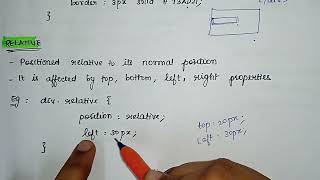 border : 3px solid # 73AD21;
RELATIVE
- Positioned relative to its normal position
- It is affected by top, bottom, left, right properties
Eg : div. relative {
position : relative;
left : 30px;
}
top : 20px;
left : 30px;